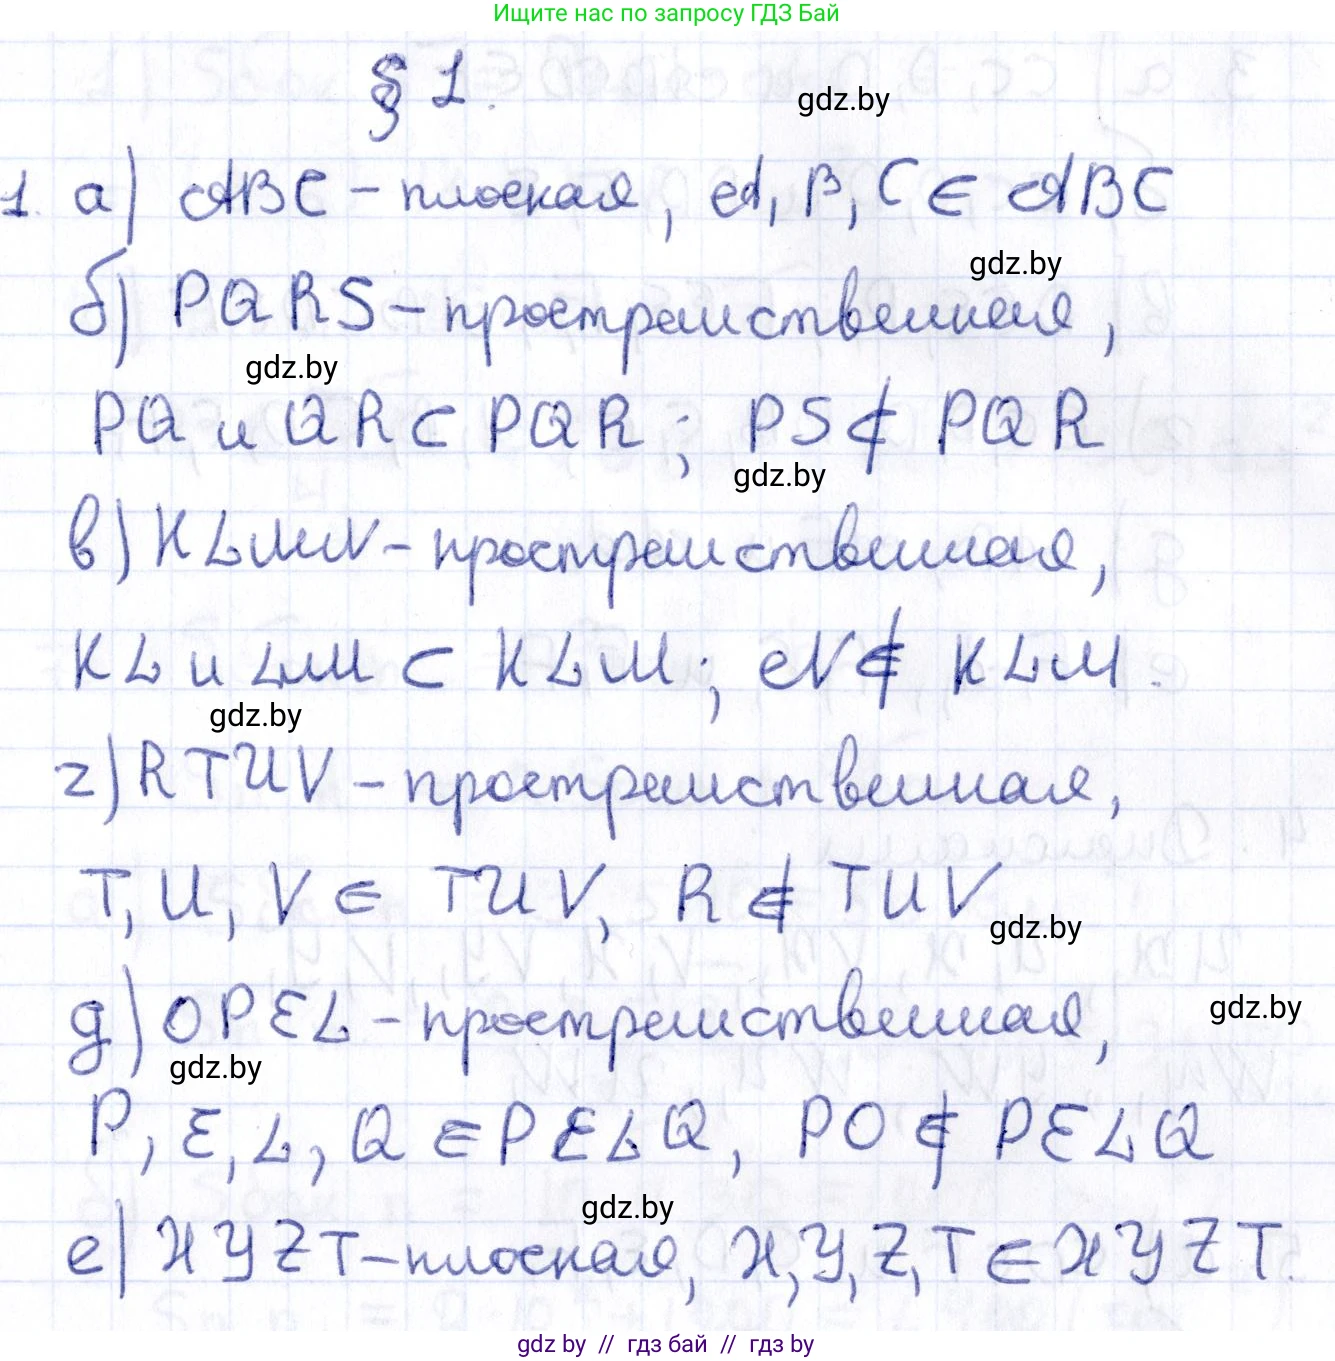 Ищите нас по запросу ГДЗ Бай
§ 1.
gdz.by
1. а) ABC – плоская, A, B, C ∈ ABC
gdz.by
б) PQRS – пространственная,
gdz.by
PQ и QR ⊂ PQR; PS ⊄ PQR
gdz.by
в) KLMN – пространственная,
KL и LM ⊂ KLM; N ∉ KLM.
gdz.by
г) RTUV – пространственная,
T, U, V ∈ TUV, R ∉ TUV
gdz.by
д) OPEL – пространственная,
gdz.by
gdz.by
P, E, L, Q ∈ PELQ, PO ∉ PELQ
gdz.by
е) XYZT – плоская, X, Y, Z, T ∈ XYZT.
gdz by // гдз бай // гдз by